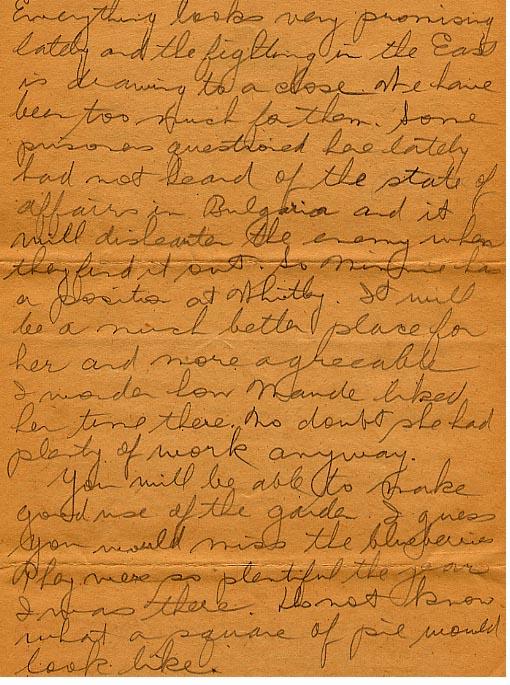 Everything looks very promising
lately and the fighting in the East
is drawing to a close. We have
been too much for them. Some
prisoners questioned here lately
had not heard of the state of
affairs in Bulgaria and it
will dishearten the enemy when
they find it out. So Minnie has
a position at Whitby. It will
be a much better place for
her and more agreeable
I wonder how Maude liked
her time there. No doubt she had
plenty of work anyway.
You will be able to make
good use of the garden. I guess
you would miss the blueberries
They were so plentiful the year
I was there. Do not know
what a square of pie would
look like.